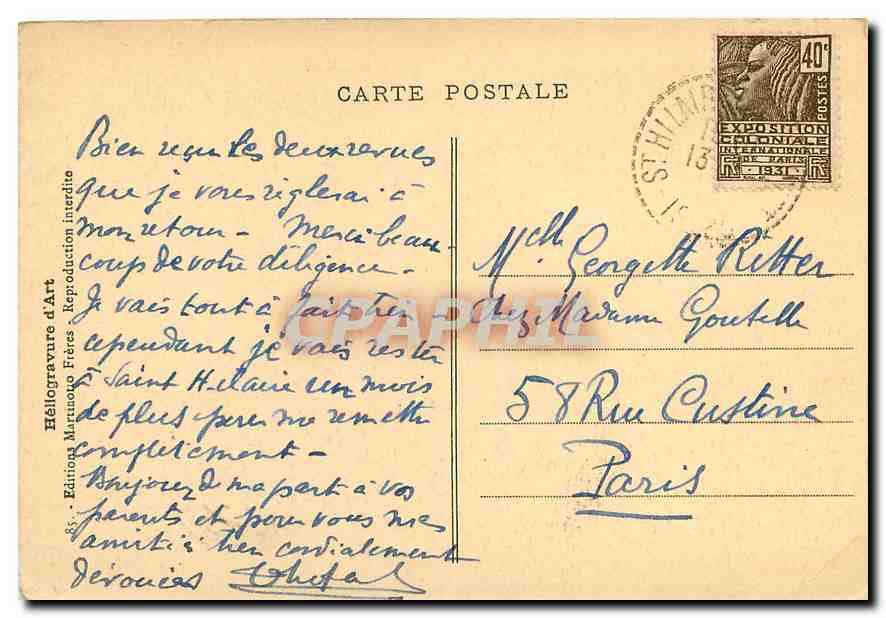 CARTE POSTALE
40c
POSTES
EXPOSITION
COLONIALE
INTERNATIONALE
DE PARIS
1931
ST HILAIR
13
Bien reçu les deux revues
que je vous règlerai à
mon retour - Merci beau
coup de votre diligence -
Je vais tout à fait bien -
cependant je vais rester
à Saint Hilaire un mois
de plus pour me remettre
complètement -
Bonjour de ma part à vos
parents et pour vous mes
amitiés bien cordialement
dévouées
Melle Georgette Ritter
chez Madame
58 Rue Custine
Paris
Héliogravure d'Art
85. - Editions Martinotto Frères - Reproduction interdite
CPAPHIL